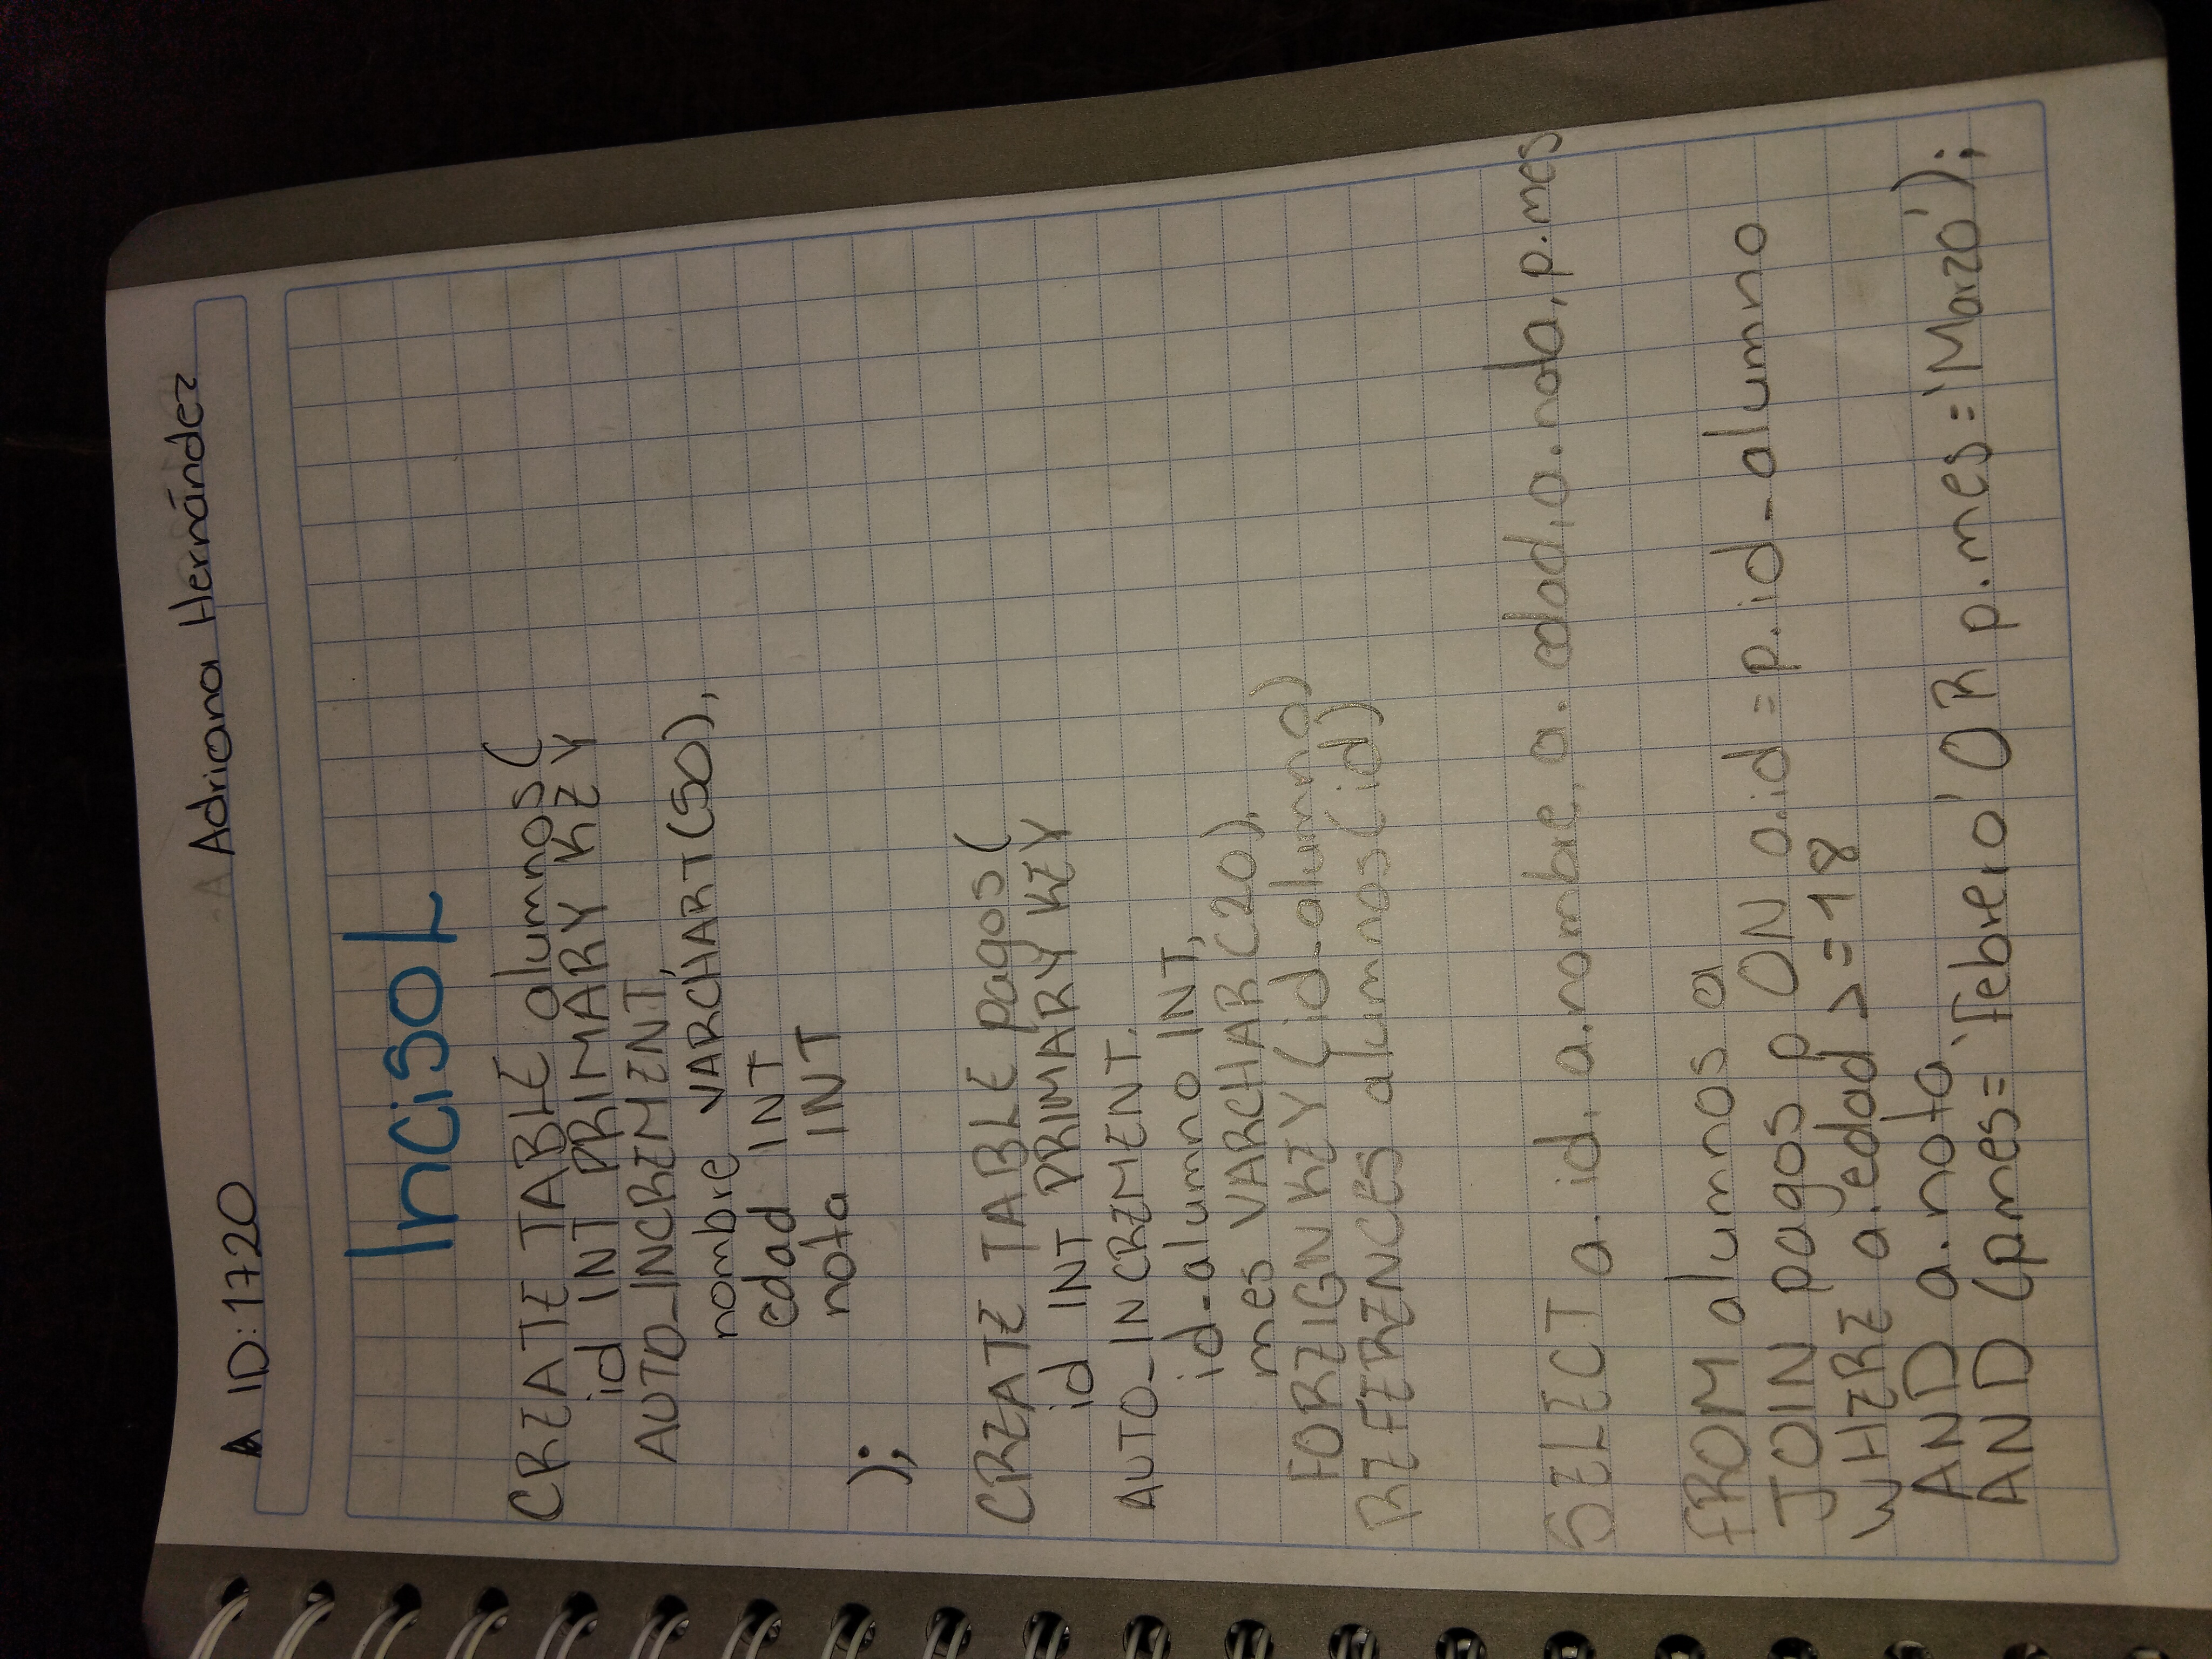 ID: 1720 Adriana Hernández
Inciso L
CREATE TABLE alumnos(
id INT PRIMARY KEY
AUTO_INCREMENT,
nombre VARCHART(50),
edad INT
nota INT
);
CREATE TABLE pagos(
id INT PRIMARY KEY
AUTO_INCREMENT,
id_alumno INT,
mes VARCHAR(20),
FOREIGN KEY(id_alumno)
REFERENCES alumnos(id)
SELECT a.id, a.nombre, a.edad, a.nota, p.mes
FROM alumnos a
JOIN pagos p ON a.id = p.id_alumno
WHERE a.edad >= 18
AND a.nota
AND (p.mes = 'Febrero' OR p.mes = 'Marzo');